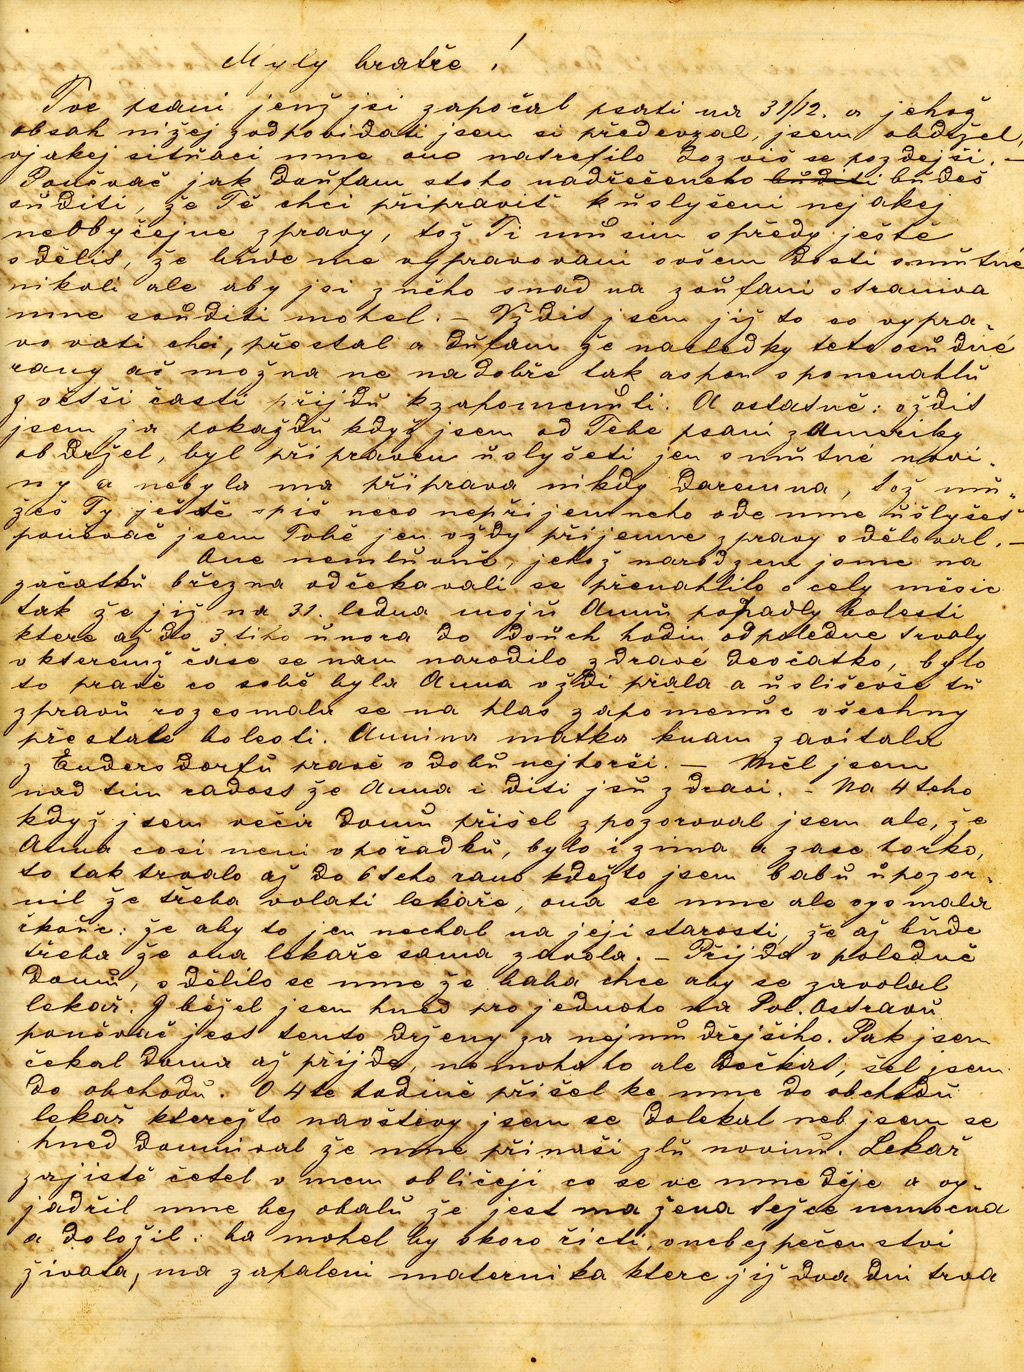 Myly bratře !
Tve psani jenž jsi započal psati na 31/12. a jehož
obsah nižej zodpovidati jsem si předevzal, jsem obdržel,
vjakej sitůaci mne ono natrefilo dozviš se pozdejši. —
Poněvač jak doufam stoho nadřečeneho bůditi bůdeš
sůditi, že Tě chci připraviť kůslyšeni nejakej
neobyčejne zpravy, tož Ti můsim spředy ještě
sděliť, že bůde me vypravovani ovšem dosti smůtné
nikoli ale aby jsi zněho snad na zoůfani straniva
mne soůditi mohel. — Vždit jsem již to co vypra-
vovati chci, přestal a důfam že nasledky teto osůdné
rany ač možna ne nadobře tak aspon sponenahlů
zvětši časti přijdů kzapomenůti. A ostatně: vždit
jsem ja pokaždů když jsem od Tebe psani zAmeriky
obdržel, byl připraven ůslyšeti jen smůtné novi-
ny a nebyla ma připrava nikdy daremna, tož mů-
žeš Ty ještě spiš neco nepřijemneho ode mne ůslyšeť
poněvač jsem Tobě jen vždy přijemne zpravy sděloval. —
One nemlůvně, jehož narodzeni jsme na
začatků března odčekavali se přenahlilo o cely měsic
tak že již na 31. ledna mojů Annů popadly bolesti
ktere až do 3tiho ůnora do doůch hodin odpoledne trvaly
v kteremž čase se nam narodilo zdravé děvčatko, bylo
to pravě co sobě byla Anna vždi přala a ůsliševše tů
zpravů rozesmala se na hlas zapomenůc všechny
přestale bolesti. Annina matka knam zavitala
z Endersdorfů pravě v dobů nejhorši. — Měl jsem
nad tim radosť že Anna i diti jsů zdravi. — Na 4teho
když jsem večir domů přišel zpozoroval jsem ale, že
Anna cosi neni vpořadků, bylo i zima a zase horko,
to tak trvalo až do 6teho rano kdežto jsem babů ůpozor-
nil že třeba volati lekaře, ona se mne ale vysmala
řkouc: že aby to jen nechal na jeji starosti, že až bůde
třeba že ona lekaře sama zavola. — Přijda vpoledně
domů, sdělilo se mne že baba chce aby se zavolal
lekař. I běžel jsem hned pro jednoho na Pol. Ostravů
poněvač jest tento drženy za nejmůdřejšiho. Pak jsem
čekal doma až přijde, nemoha ho ale dočkat, šel jsem
do obchodů. O 4te hodině přišel ke mne do obchodů
lekař kterejžto navštevy jsem se dolekal neb jsem se
hned domnival že mne přinaši zlů novinů. Lekař
zajistě četel v mem obličeji co se ve mne děje a vy-
jadřil mne bez obalů že jest ma žena težce nemocna
a doložil: ba mohel by skoro řicti, vnebezpečenstvi
života, ma zapaleni maternika ktere již dva dni trva